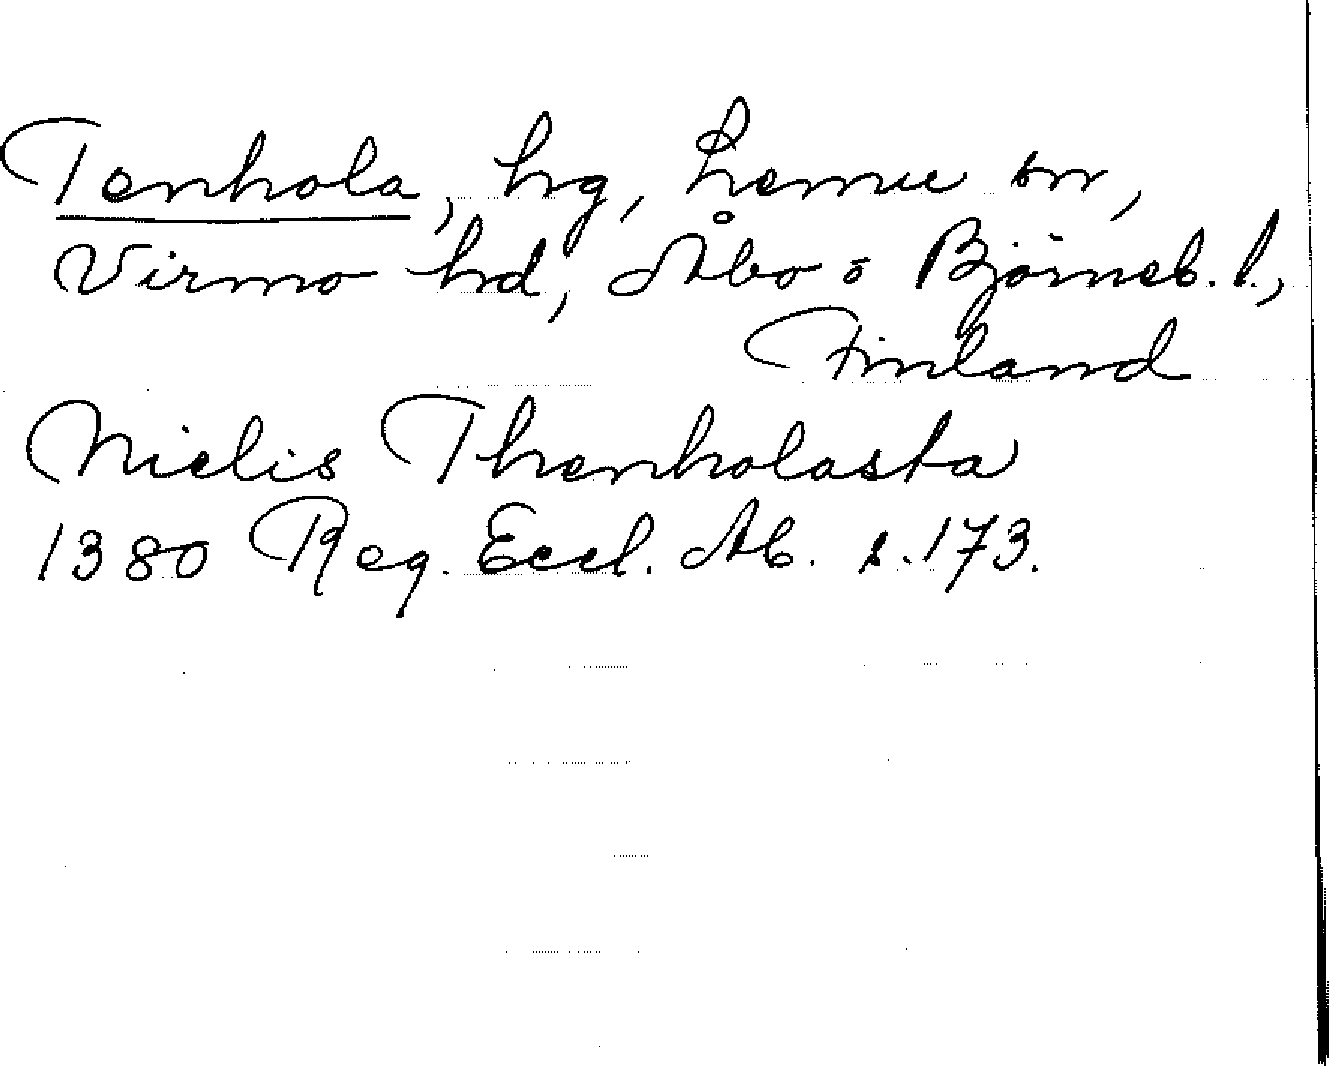 Tenhola, hg, Lemu sn,
Virmo hd, Åbo o Björneb. l.,
Finland
Nielis Thenholasta
1380 Reg. Eccl. Ab. s. 173.